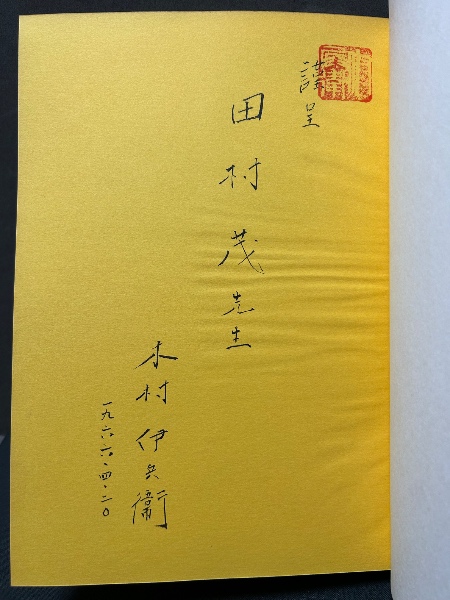 謹呈
田村茂先生
木村伊兵衛
一九六六・四・二〇